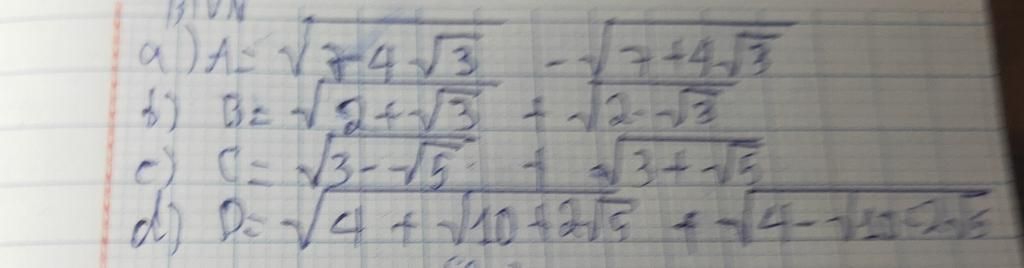 BTVN
a) A = √(7-4√3) - √(7+4√3)
b) B = √(2+√3) + √(2-√3)
c) C = √(3-√5) + √(3+√5)
d) D = √(4+√(10+2√5)) + √(4-√(10-2√5))